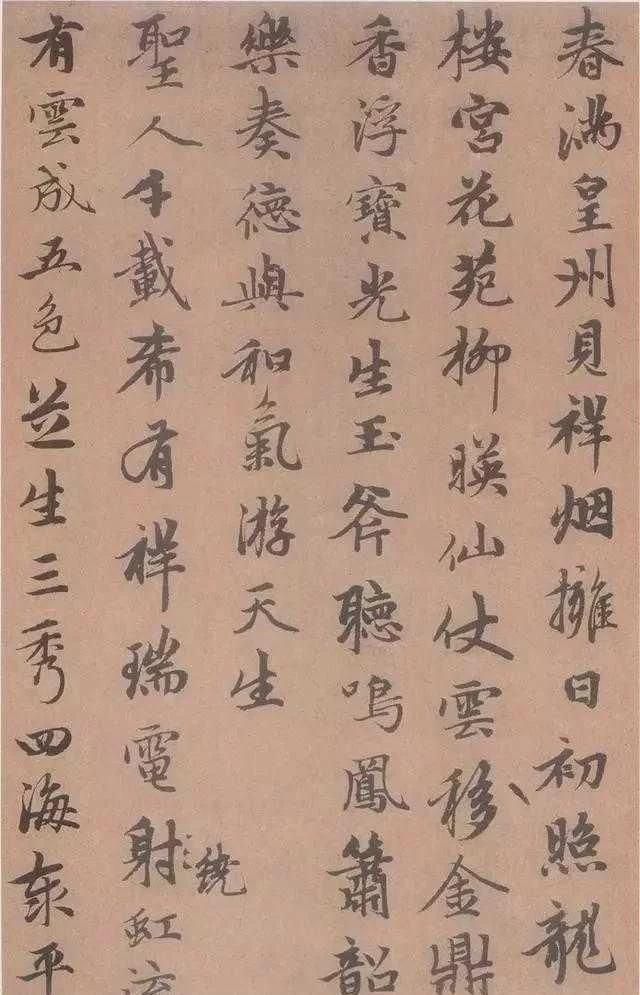 春滿皇州見祥烟擁日初照龍
楼宫花苑柳暎仙仗雲移金鼎
香浮寶光生玉斧聽鳴鳳簫韶
樂奏德與和氣游天生
聖人千載希有祥瑞電射繞虹流
有雲成五色芝生三秀四海泰平